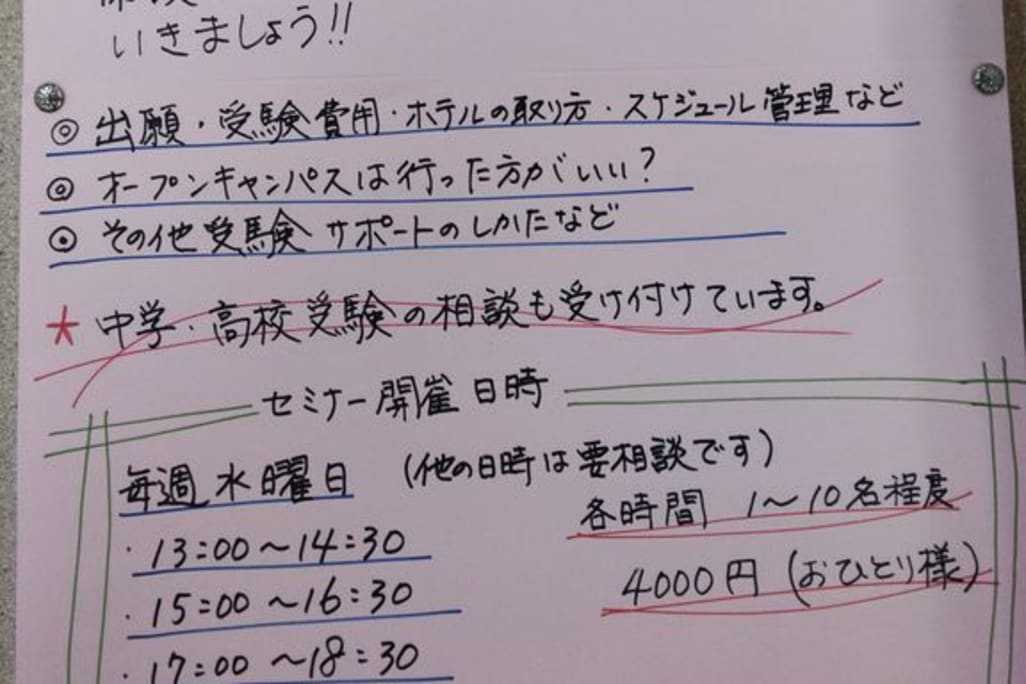 いきましょう!!
◎ 出願・受験費用・ホテルの取り方・スケジュール管理など
◎ オープンキャンパスは行った方がいい?
◎ その他受験サポートのしかたなど
★ 中学・高校受験の相談も受け付けています。
セミナー開催日時
毎週水曜日 (他の日時は要相談です)
・13:00〜14:30
各時間 1〜10名程度
・15:00〜16:30
4000円(おひとり様)
・17:00〜18:30